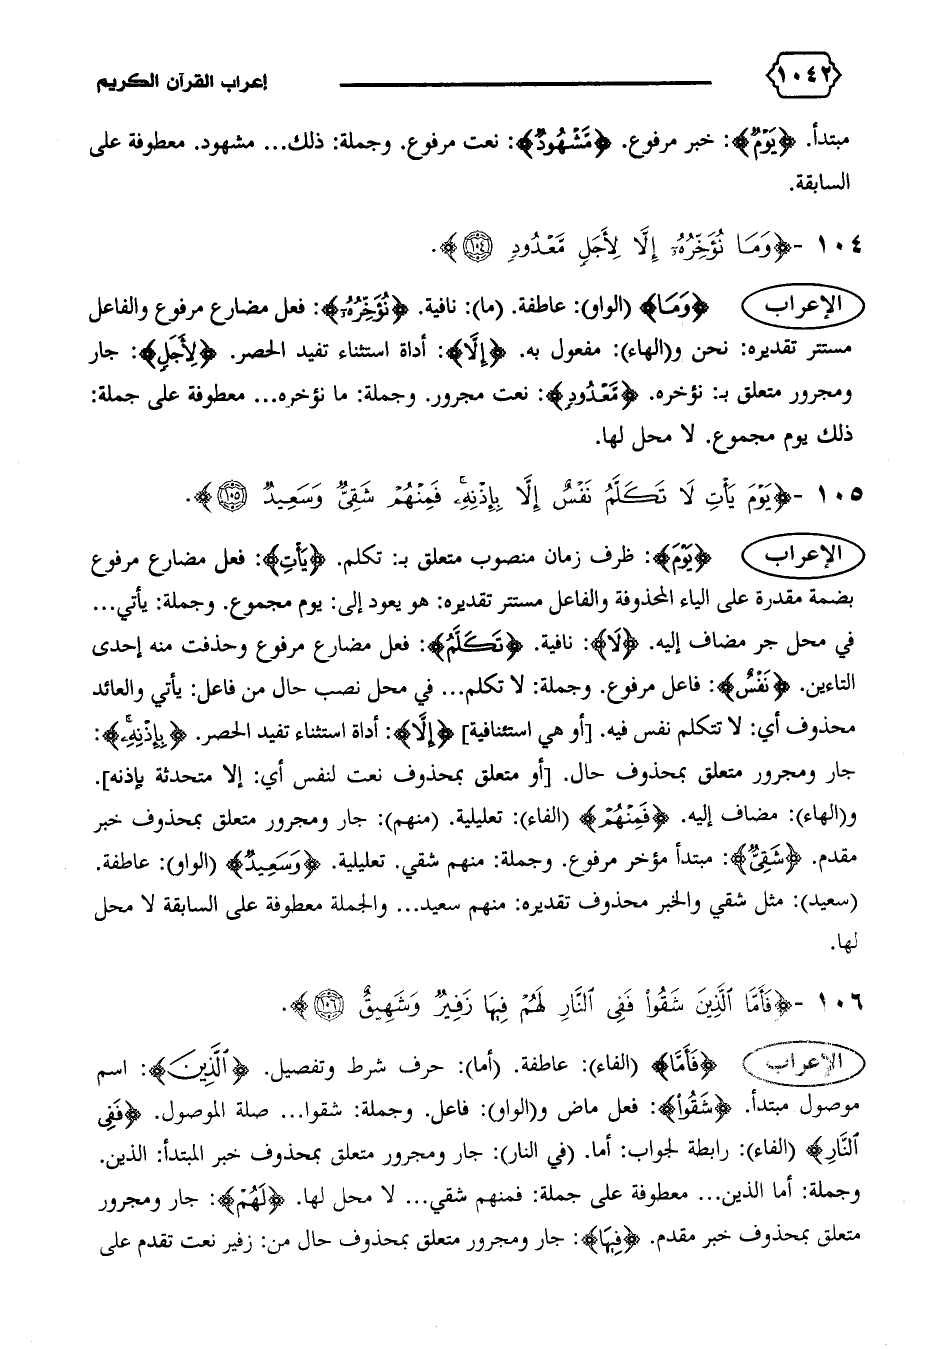 ١٠٤٢ إعراب القرآن الكريم
مبتدأ. ﴿يَوْمٌ﴾: خبر مرفوع. ﴿مَّشْهُودٌ﴾: نعت مرفوع. وجملة: ذلك... مشهود. معطوفة على
السابقة.
١٠٤ -﴿وَمَا نُؤَخِّرُهُۥٓ إِلَّا لِأَجَلٍ مَّعْدُودٍ ﴿١٠٤﴾﴾.
الإعراب ﴿وَمَا﴾ (الواو): عاطفة. (ما): نافية. ﴿نُؤَخِّرُهُۥٓ﴾: فعل مضارع مرفوع والفاعل
مستتر تقديره: نحن و(الهاء): مفعول به. ﴿إِلَّا﴾: أداة استثناء تفيد الحصر. ﴿لِأَجَلٍ﴾: جار
ومجرور متعلق بـ: نؤخره. ﴿مَّعْدُودٍ﴾: نعت مجرور. وجملة: ما نؤخره... معطوفة على جملة:
ذلك يوم مجموع. لا محل لها.
١٠٥ -﴿يَوْمَ يَأْتِ لَا تَكَلَّمُ نَفْسٌ إِلَّا بِإِذْنِهِۦۚ فَمِنْهُمْ شَقِيٌّ وَسَعِيدٌ ﴿١٠٥﴾﴾.
الإعراب ﴿يَوْمَ﴾: ظرف زمان منصوب متعلق بـ: تكلم. ﴿يَأْتِ﴾: فعل مضارع مرفوع
بضمة مقدرة على الياء المحذوفة والفاعل مستتر تقديره: هو يعود إلى: يوم مجموع. وجملة: يأتي...
في محل جر مضاف إليه. ﴿لَا﴾: نافية. ﴿تَكَلَّمُ﴾: فعل مضارع مرفوع وحذفت منه إحدى
التاءين. ﴿نَفْسٌ﴾: فاعل مرفوع. وجملة: لا تكلم... في محل نصب حال من فاعل: يأتي والعائد
محذوف أي: لا تتكلم نفس فيه. [أو هي استئنافية] ﴿إِلَّا﴾: أداة استثناء تفيد الحصر. ﴿بِإِذْنِهِۦۚ﴾:
جار ومجرور متعلق بمحذوف حال. [أو متعلق بمحذوف نعت لنفس أي: إلا متحدثة بإذنه].
و(الهاء): مضاف إليه. ﴿فَمِنْهُمْ﴾ (الفاء): تعليلية. (منهم): جار ومجرور متعلق بمحذوف خبر
مقدم. ﴿شَقِيٌّ﴾: مبتدأ مؤخر مرفوع. وجملة: منهم شقي. تعليلية. ﴿وَسَعِيدٌ﴾ (الواو): عاطفة.
(سعيد): مثل شقي والخبر محذوف تقديره: منهم سعيد... والجملة معطوفة على السابقة لا محل
لها.
١٠٦ -﴿فَأَمَّا ٱلَّذِينَ شَقُوا۟ فَفِى ٱلنَّارِ لَهُمْ فِيهَا زَفِيرٌ وَشَهِيقٌ ﴿١٠٦﴾﴾.
الإعراب ﴿فَأَمَّا﴾ (الفاء): عاطفة. (أما): حرف شرط وتفصيل. ﴿ٱلَّذِينَ﴾: اسم
موصول مبتدأ. ﴿شَقُوا۟﴾: فعل ماض و(الواو): فاعل. وجملة: شقوا... صلة الموصول. ﴿فَفِى
ٱلنَّارِ﴾ (الفاء): رابطة لجواب: أما. (في النار): جار ومجرور متعلق بمحذوف خبر المبتدأ: الذين.
وجملة: أما الذين... معطوفة على جملة: فمنهم شقي... لا محل لها. ﴿لَهُمْ﴾: جار ومجرور
متعلق بمحذوف خبر مقدم. ﴿فِيهَا﴾: جار ومجرور متعلق بمحذوف حال من: زفير نعت تقدم على